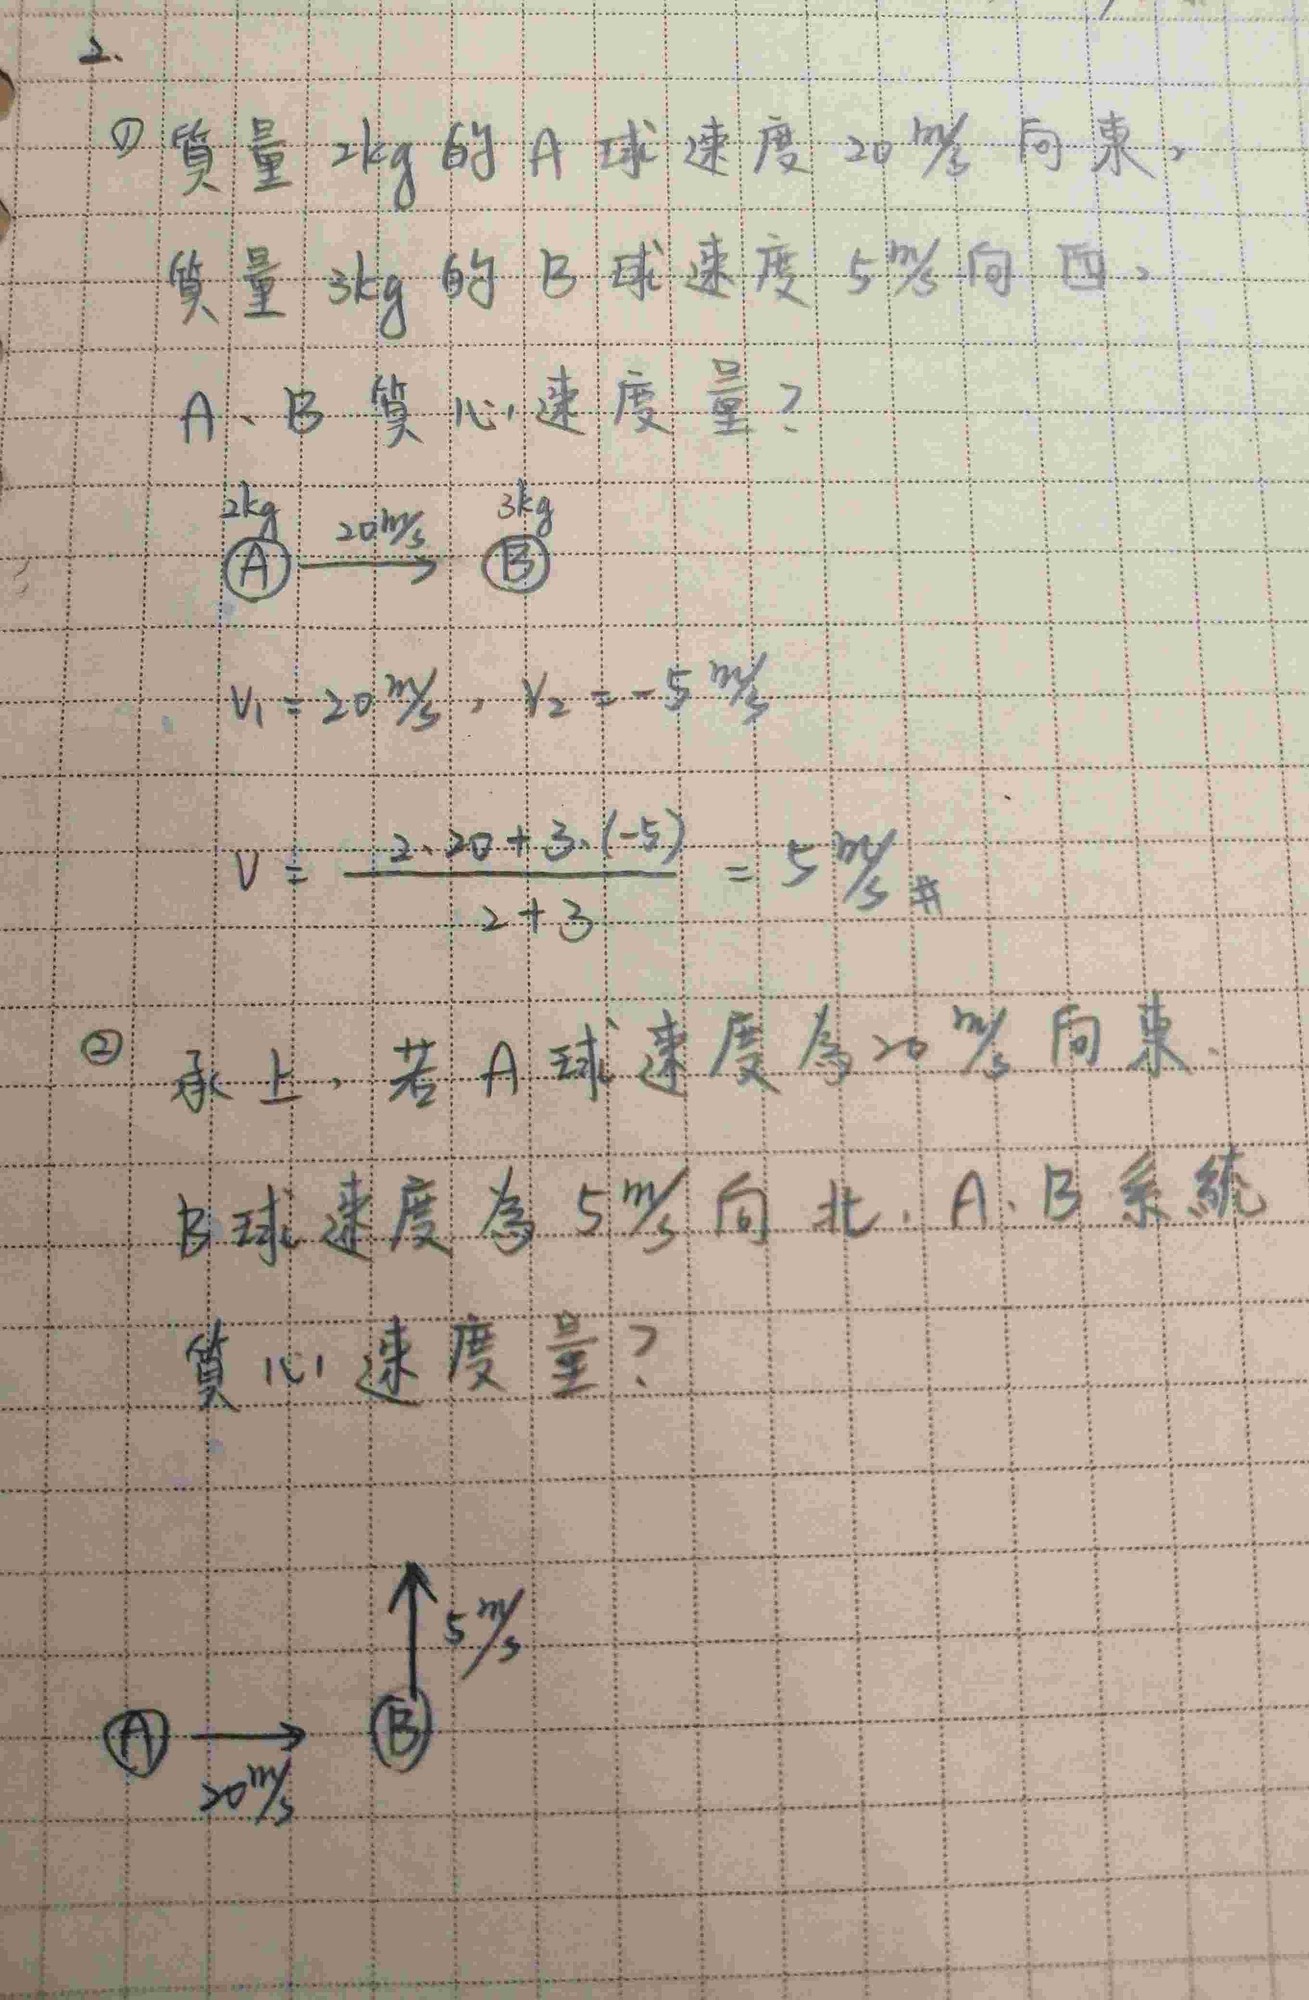 2.
① 質量 2kg 的 A 球速度 20 m/s 向東，
質量 3kg 的 B 球速度 5 m/s 向西，
A、B 質心速度量？
2kg 3kg
A 20 m/s B
V₁ = 20 m/s , V₂ = -5 m/s
V = \frac{2·20+3·(-5)}{2+3} = 5 m/s #
② 承上，若 A 球速度為 20 m/s 向東.
B 球速度為 5 m/s 向北，A、B 系統
質心速度量？
5 m/s
A B
20 m/s